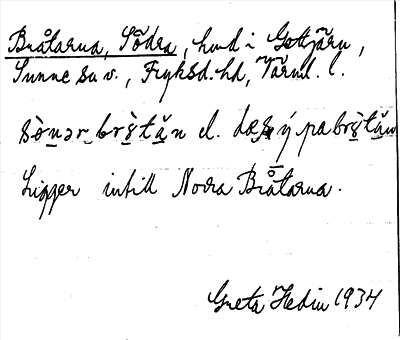 Bråtarna, Södra, hmd i Gettjärn,
Sunne sn v., Fryksd. hd, Värml. l.
sò̤nər brɤ̀tăn el. dæ ý pa brɤ̀tăn
Ligger intill Norra Bråtarna.
Greta Hedin 1934